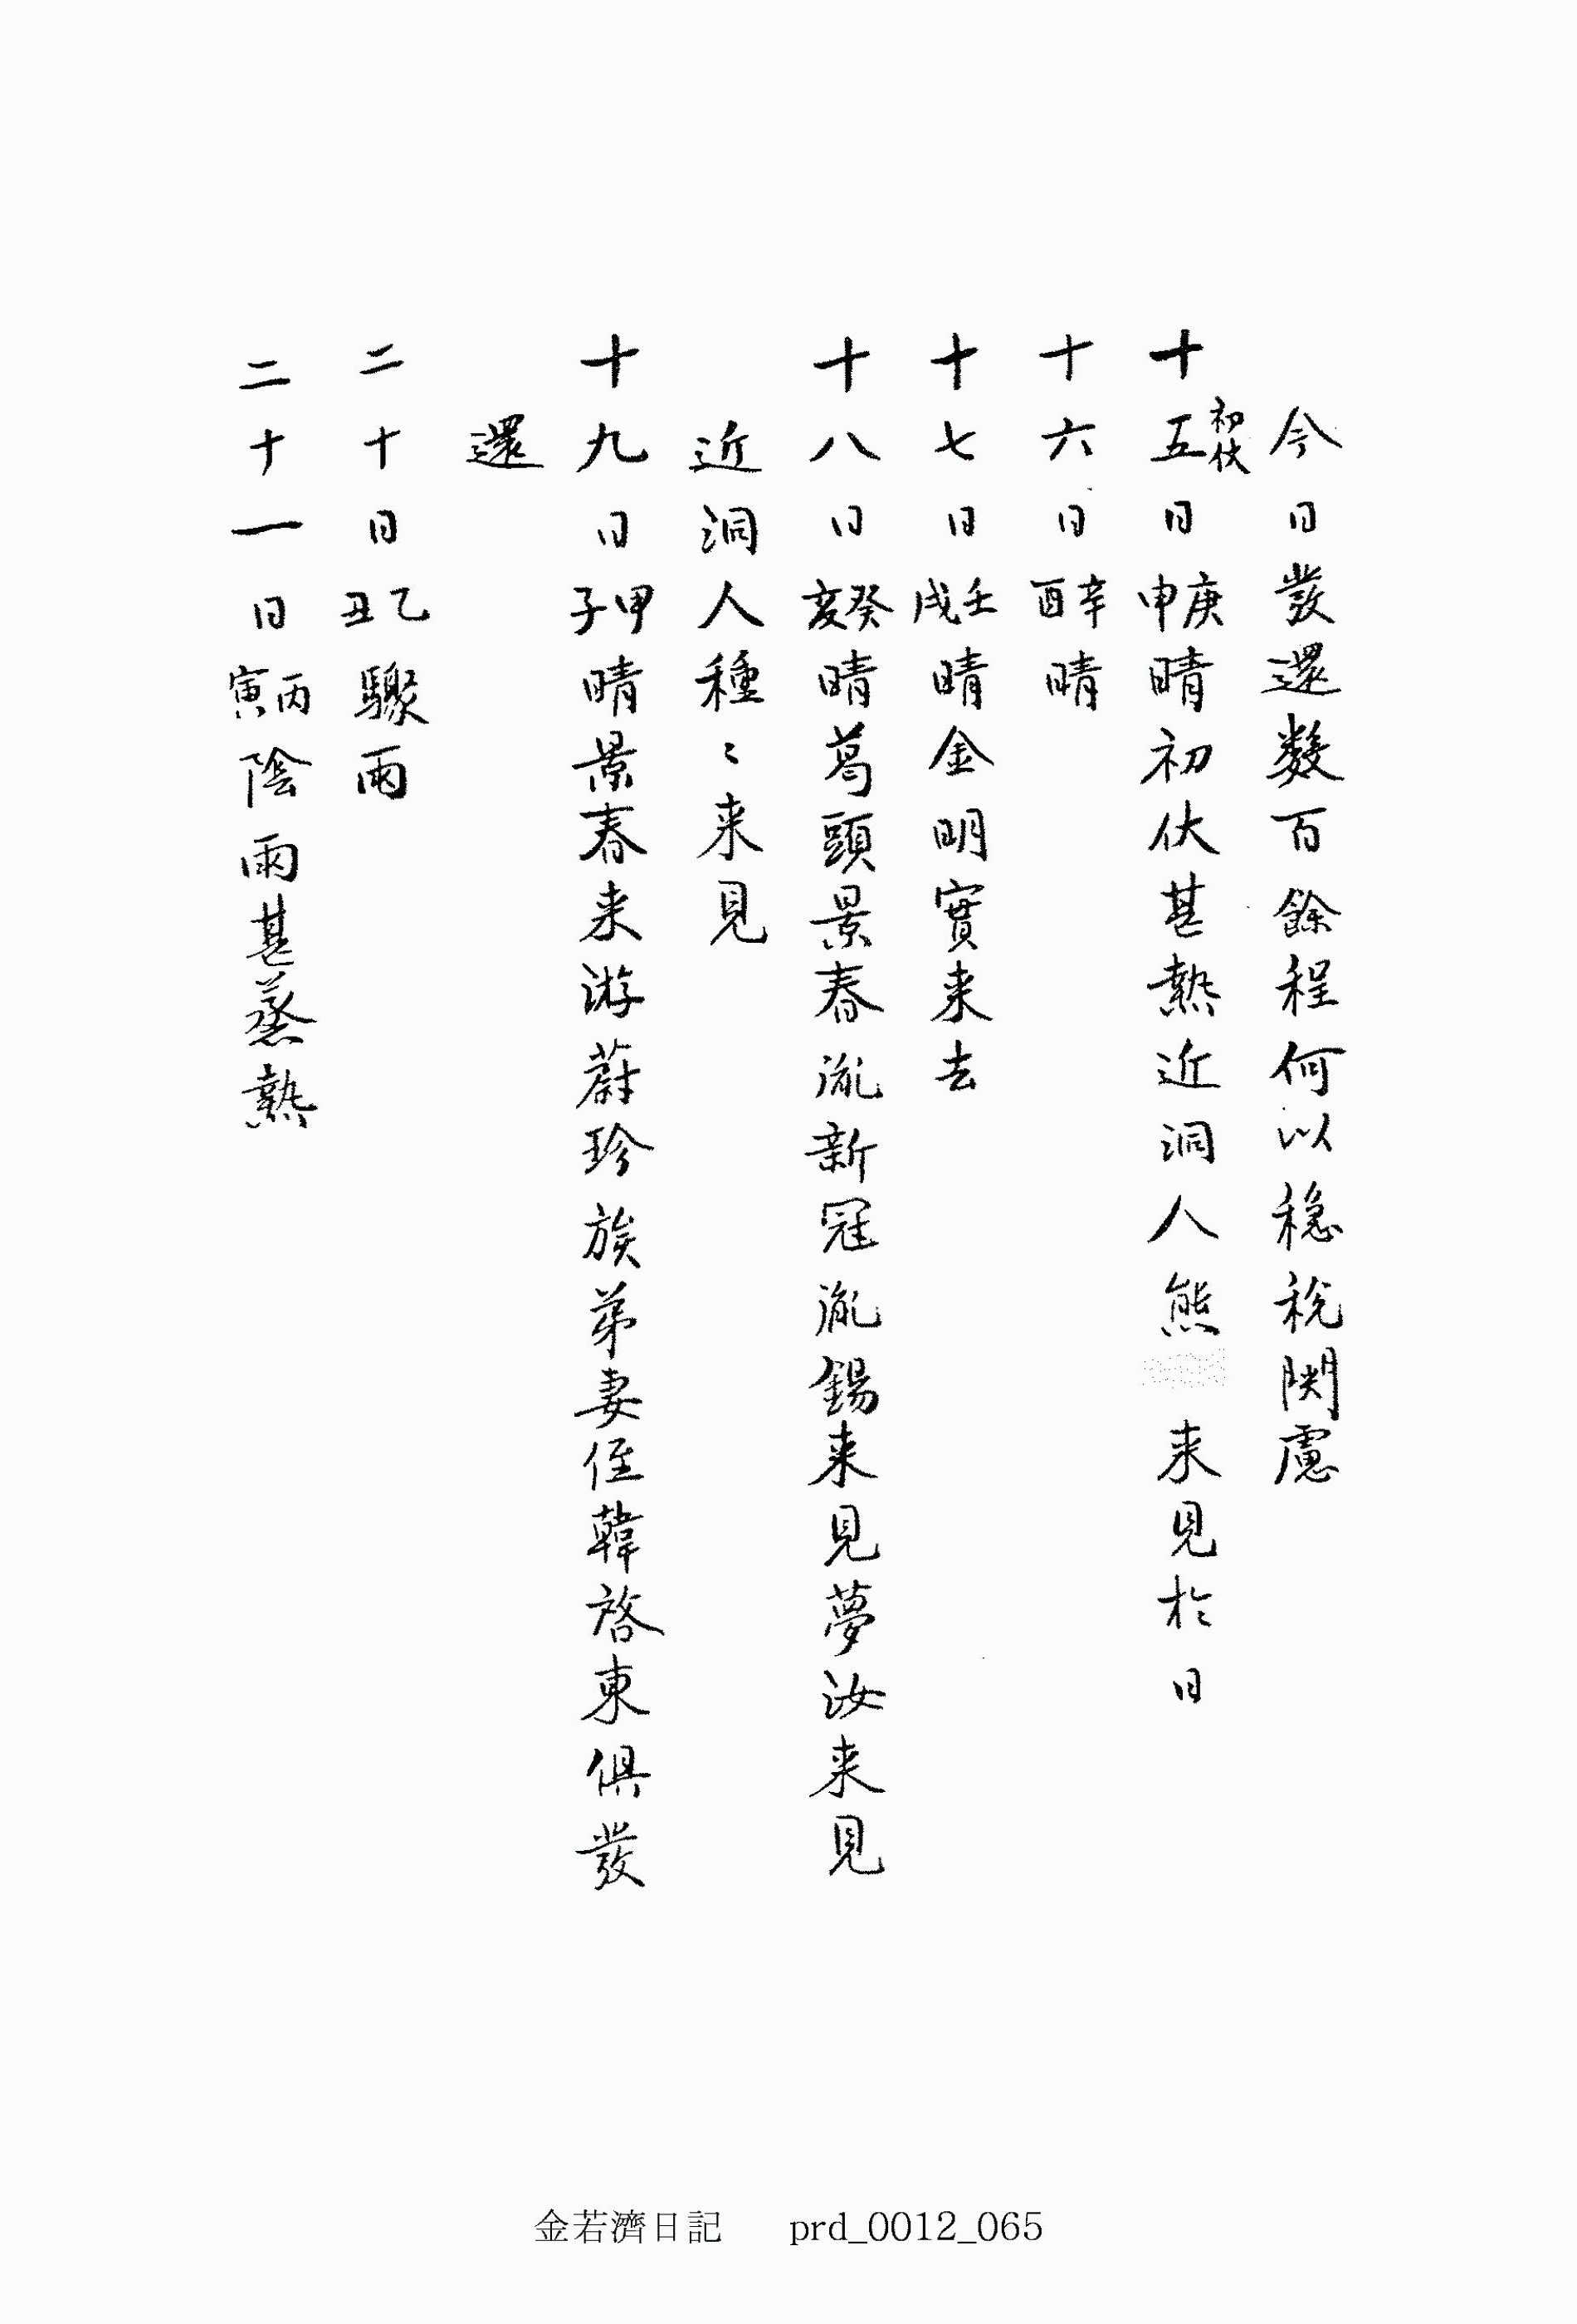 今日發還數百餘程何以穩稅関慮
十五日初伏庚申晴初伏甚熱近洞人熊 来見於日
十六日辛酉晴
十七日壬戌晴金明實来去
十八日癸亥晴葛頭景春胤新冠胤錫来見夢汝来見
近洞人種〻来見
十九日甲子晴景春来游蔚珍族弟妻侄韓啓東俱發
還
二十日乙丑驟雨
二十一日丙寅陰雨甚蒸熱
金若濟日記 prd_0012_065